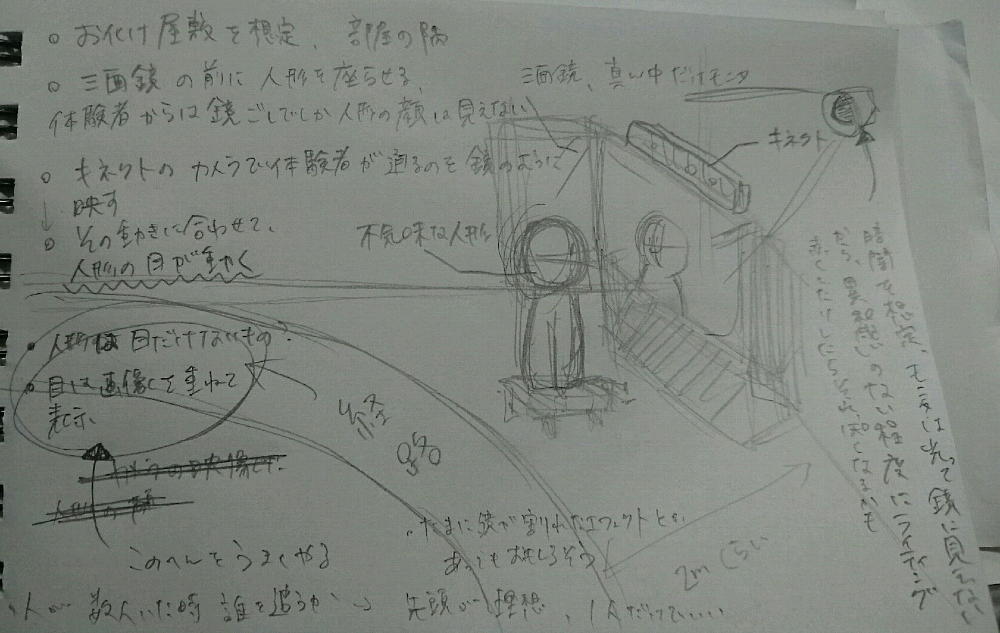 ○ お化け屋敷を想定、部屋の隅
○ 三面鏡の前に人形を座らせる、
体験者からは鏡ごしでしか人形の顔は見えない
○ キネクトのカメラで体験者が通るのを鏡のように
映す
↓
○ その動きに合わせて、
人形の目が動く
・人形は目だけないもの?
・目は画像として重ねて
表示
人形の顔
このへんをうまくやる
三面鏡、真ん中だけモニタ
キネクト
不気味な人形
経路
・たまに鏡が割れたエフェクトとか
あってもおもしろそう
2mくらい
・人が数人いた時誰を追うか→先頭が理想、1人だっていい
暗闇を想定、モニタは光って鏡に見えない
だら、異和感のない程度にライティング
赤くしたりしたらそれっぽくなるかも